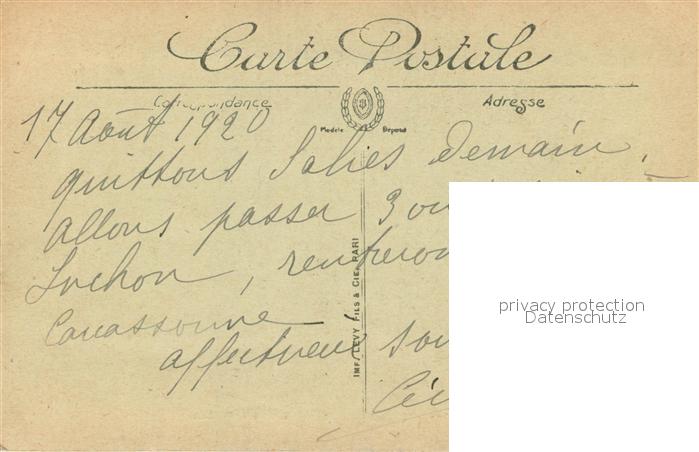 Carte Postale
Correspondance
Adresse
Modèle Déposé
17 Août 1920
quittons Salies Demain,
allons passer 3 ou
Luchon, rentrerons
Carcassonne
affectueux sou
Cé
IMP. LEVY FILS & CIE, PARI
privacy protection
Datenschutz